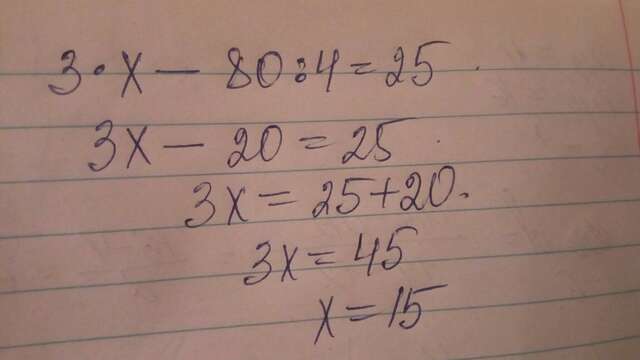 3·x — 80:4=25
3x — 20=25
3x=25+20.
3x=45
x=15